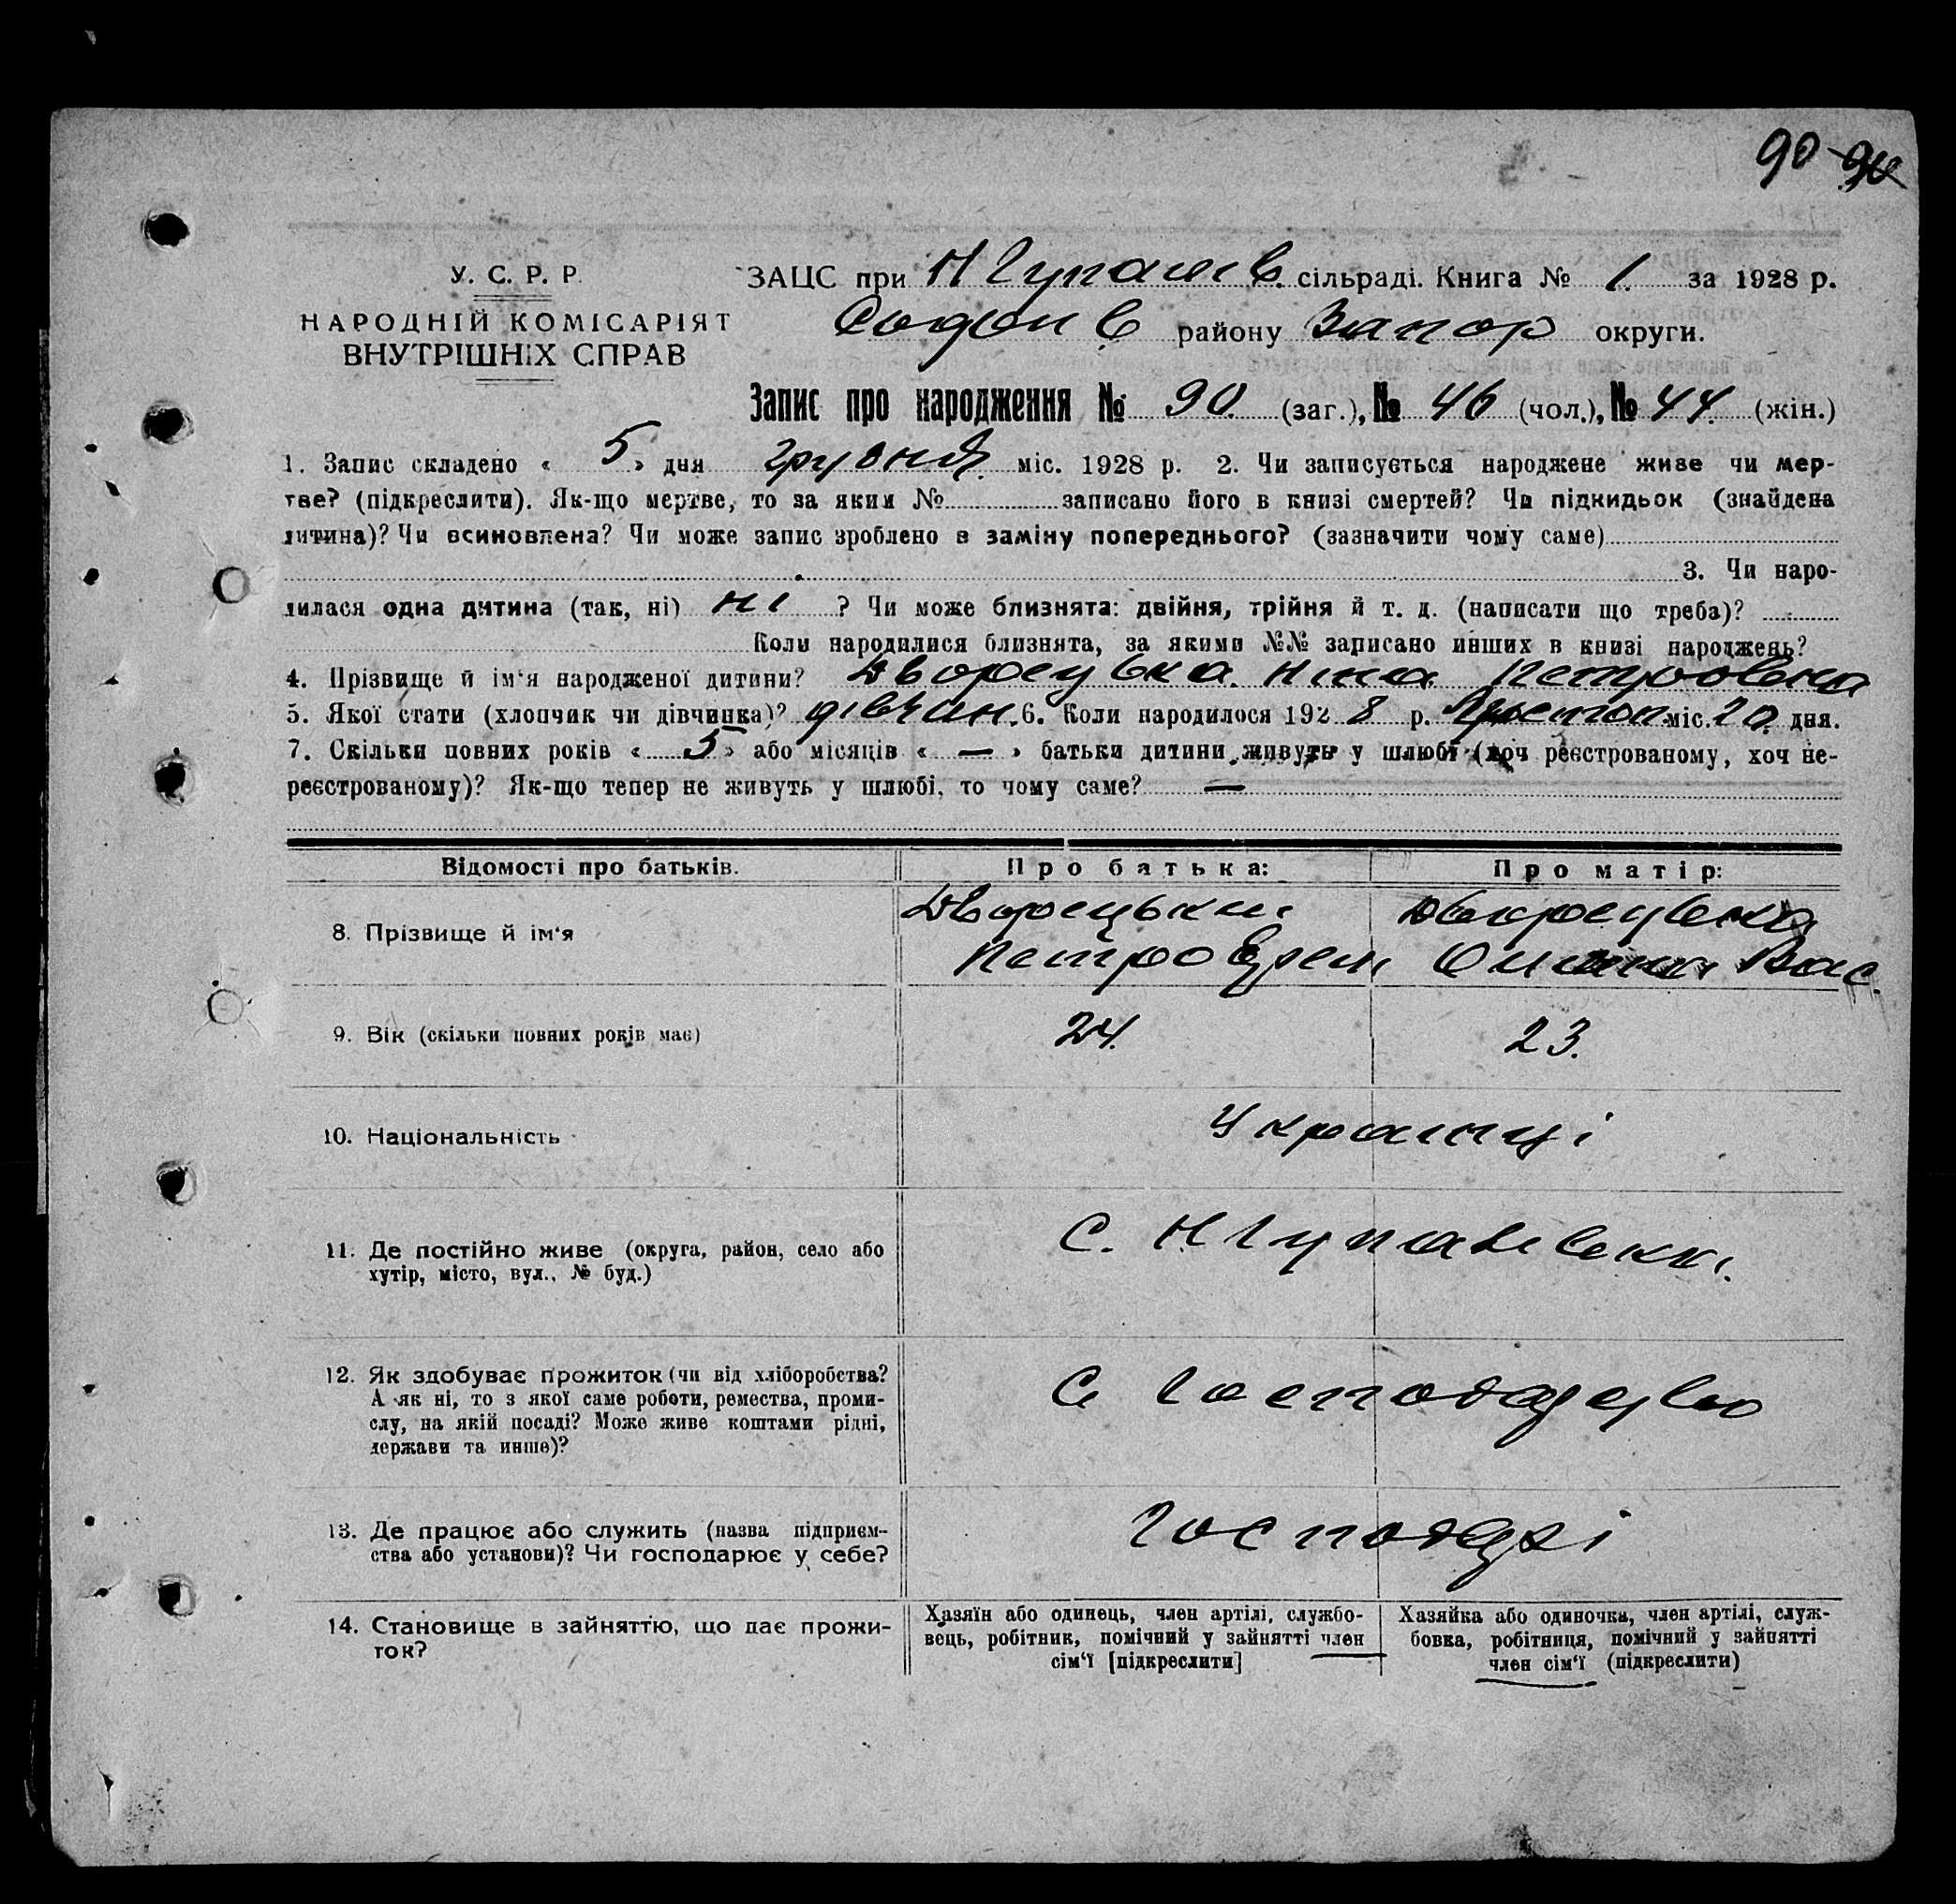 90 90
У. С. Р. Р.
НАРОДНІЙ КОМІСАРІЯТ
ВНУТРІШНІХ СПРАВ
ЗАЦС при Н Гупалів. сільраді. Книга № 1. за 1928 р.
Софіїв району Запор округи.
Запис про народження № 90. (заг.), № 46 (чол.), № 44. (жін.)
1. Запис складено « 5 » дня грудня. міс. 1928 р. 2. Чи записується народжене живе чи мер-
тве? (підкреслити). Як-що мертве, то за яким № записано його в книзі смертей? Чи підкидьок (знайдена
дитина)? Чи всиновлена? Чи може запис зроблено в заміну попереднього? (зазначити чому саме)
3. Чи наро-
дилася одна дитина (так, ні) ні ? Чи може близнята: двійня, трійня й т. д. (написати що треба)?
Коли народилися близнята, за якими №№ записано инших в книзі народжень?
4. Прізвище й ім‘я народженої дитини? Дворецька. Ніна Петровна
5. Якої стати (хлопчик чи дівчинка)? дівчин. 6. Коли народилося 1928 р. міс. 20. дня.
7. Скільки повних років « 5 » або місяців « — » батьки дитини живуть у шлюбі (хоч реєстрованому, хоч не-
реєстрованому)? Як-що тепер не живуть у шлюбі, то чому саме? —
Відомості про батьків. Про батька: Про матір:
8. Прізвище й ім‘я
Дворецький Дворецька
Петро Єрем Вас.
9. Вік (скільки повних років має) 24. 23.
10. Національність Украинці
11. Де постійно живе (округа, район, село або
хутір, місто, вул., № буд.)
С. Н Гупалівки.
12. Як здобуває прожиток (чи від хліборобства?
А як ні, то з якої саме роботи, ремества, проми-
слу, на якій посаді? Може живе коштами рідні,
держави та инше)?
С Господарство
13. Де працює або служить (назва підприєм-
ства або установи)? Чи господарює у себе?
Господарі
14. Становище в зайняттю, що дає прожи-
ток?
Хазяїн або одинець, член артілі, службо-
вець, робітник, помічний у зайнятті член
сім‘ї [підкреслити]
Хазяйка або одиночка, член артілі, служ-
бовка, робітниця, помічний у зайнятті
член сім‘ї (підкреслити)